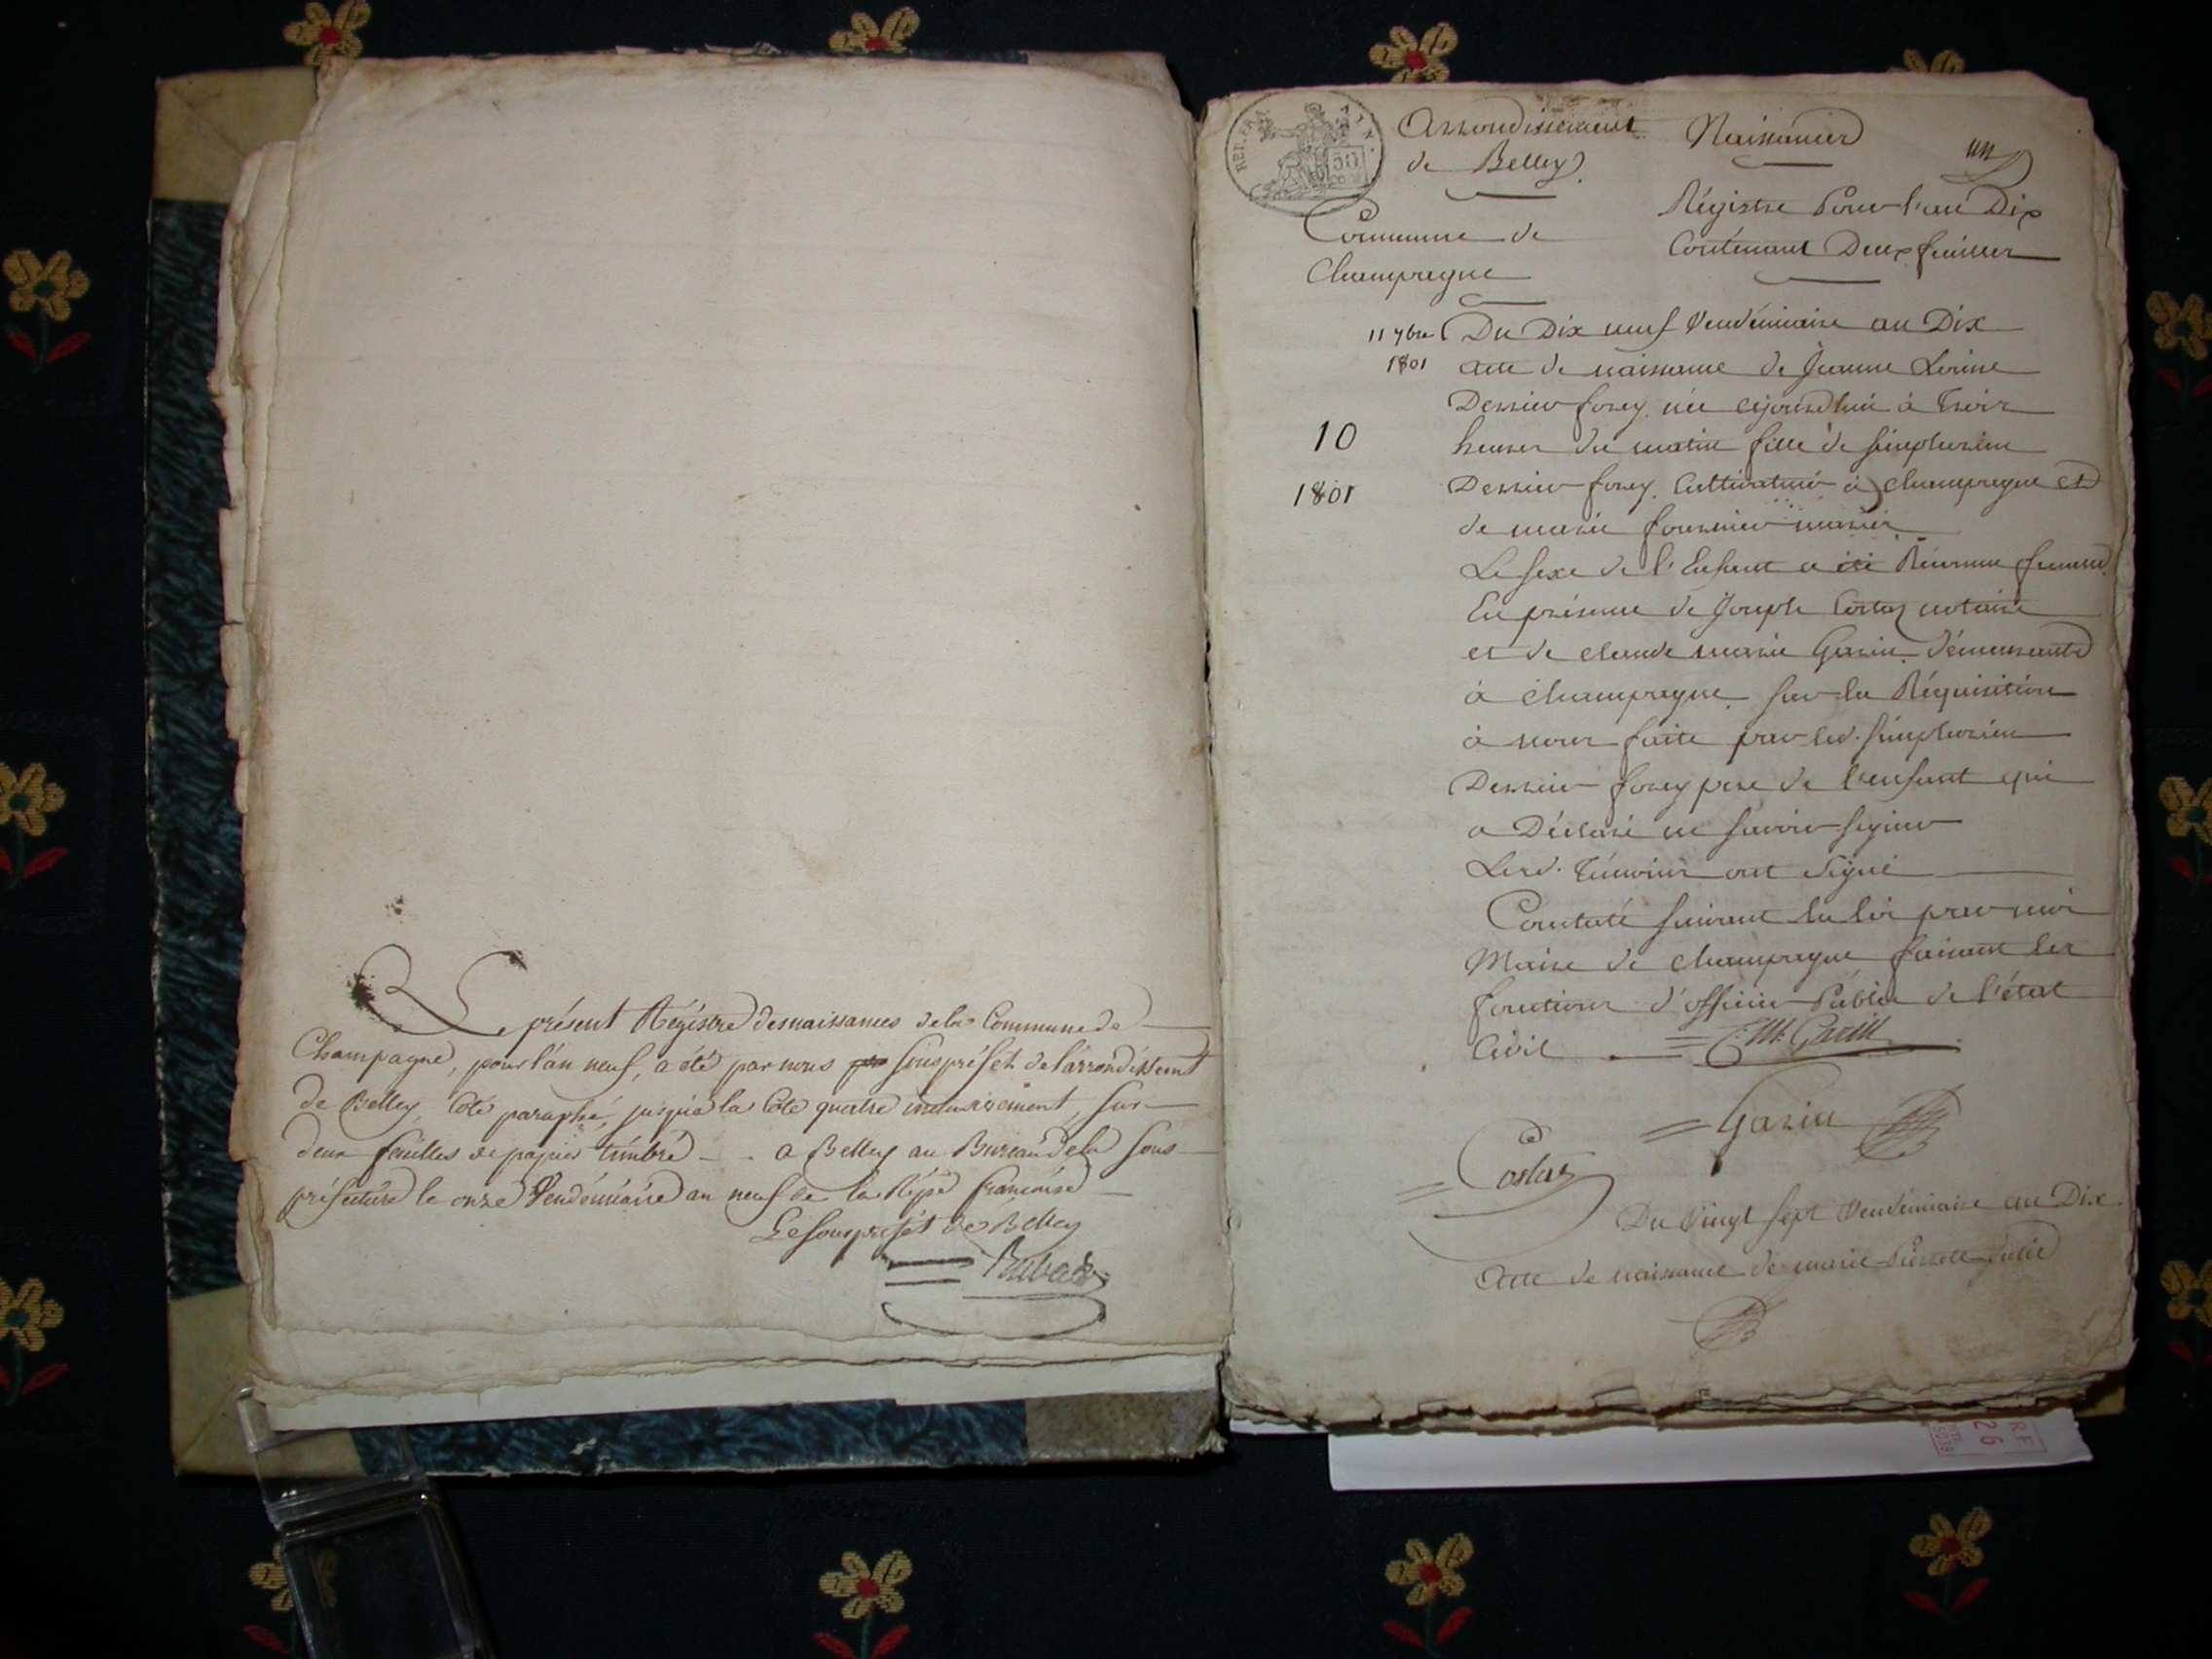 Le présent Régistre desnaissances dela Commune de
Champagne, pour l'an neuf, a été par nous souspréfét del'arrondissement
de Belley, Coté paraphé, jusqu'a la Cote quatre inclusivement, sur
deux feuilles de papier timbré - . a Belley au Bureau dela sous
préfecture le onze Vendémiaire an neuf de la Répe française
Le souspréfét de Belley
REP. FRA.
50
Arrondissement
de Belley
Naissances
un
Commune de
Champagne
Régistre Pour l'an Dix
Contenant Deux feuilles
11 7bre
1801
10
1801
Du Dix neuf Vendémiaire an Dix
acte de naissance de Jeanne
Dessieu forey née cejourd'hui à Trois
heures du matin fille de simphorien
Dessieu forey Cultivateur à champagne et
de marie fournier mariés
Le sexe de l'Enfant a été Réconnu feminin
En présence de Joseph Costaz notaire
et de claude marie Garin démeurants
à champagne sur la Réquisition
à nous faite par led. simphorien
Dessieu forey pere de l'enfant qui
a Déclaré ne savoir signer
Lesd. Témoins ont signé
Constaté suivant la loi par moi
Maire de champagne faisant les
fonctions d'officier Public de l'état
Civil
C. M. Garin
Garin
Costaz
Du Vingt sept Vendémiaire an Dix
Acte de naissance de marie Pierrette Julie
R F
26